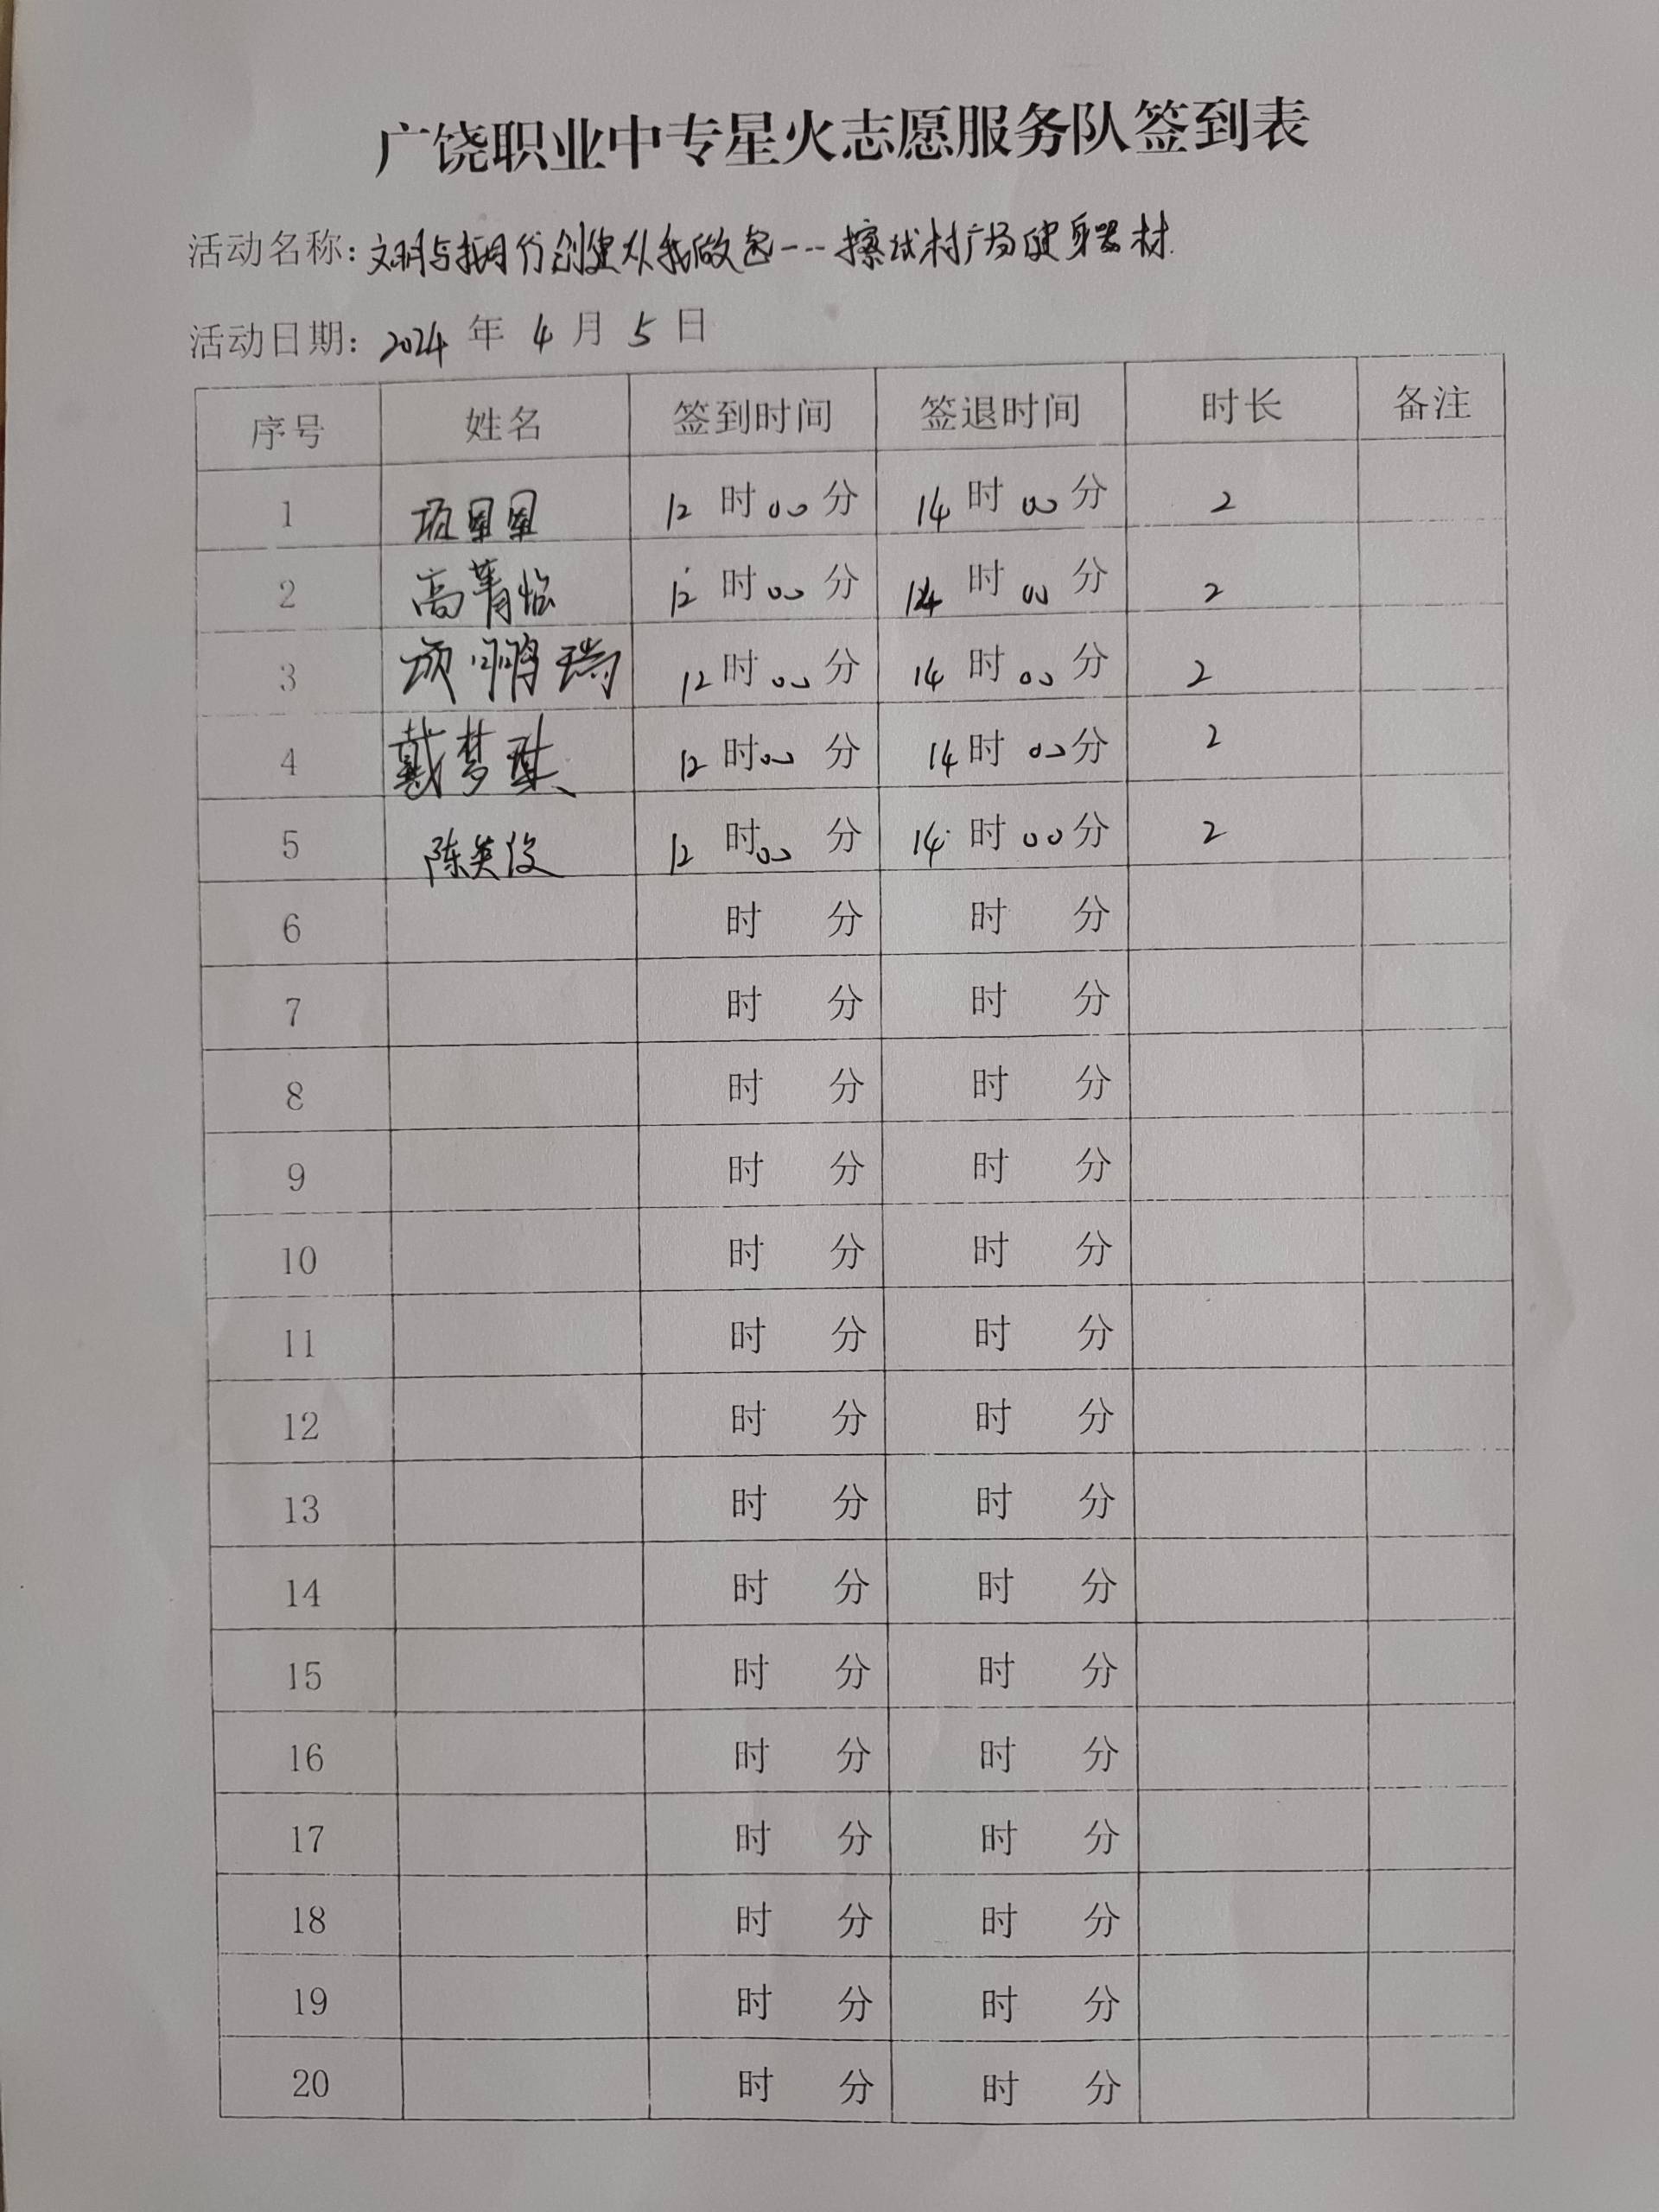 广饶职业中专星火志愿服务队签到表
活动名称：文明与我同行创建从我做起---擦拭村广场健身器材
活动日期：2024 年 4 月 5 日
序号 姓名 签到时间 签退时间 时长 备注
1 项星星 12 时 00 分 14 时 00 分 2
2 高菁临 12 时 00 分 14 时 00 分 2
3 项鹏瑞 12 时 00 分 14 时 00 分 2
4 戴梦琪 12 时 00 分 14 时 00 分 2
5 陈英俊 12 时 00 分 14 时 00 分 2
6 时 分 时 分
7 时 分 时 分
8 时 分 时 分
9 时 分 时 分
10 时 分 时 分
11 时 分 时 分
12 时 分 时 分
13 时 分 时 分
14 时 分 时 分
15 时 分 时 分
16 时 分 时 分
17 时 分 时 分
18 时 分 时 分
19 时 分 时 分
20 时 分 时 分